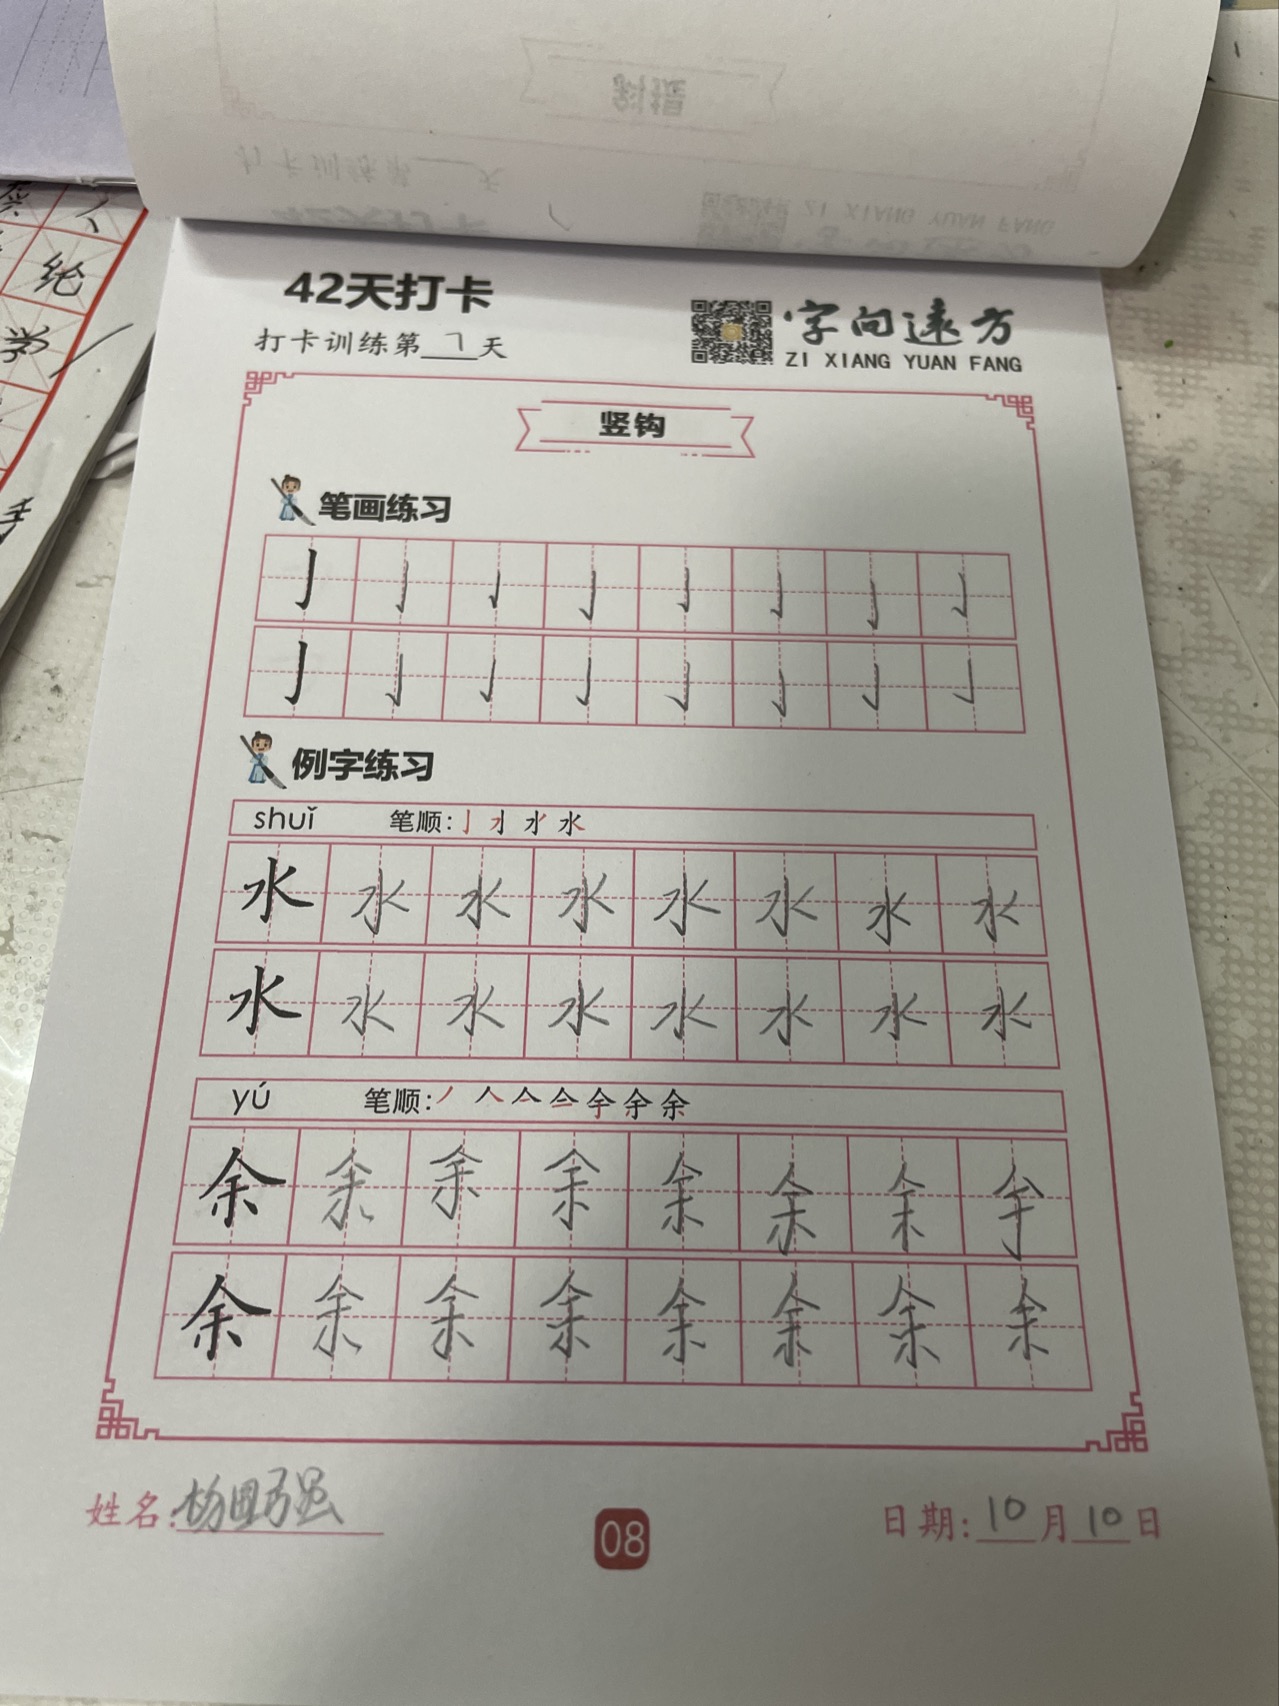 42天打卡
打卡训练第7天
字向远方
ZI XIANG YUAN FANG
竖钩
笔画练习
亅亅亅亅亅亅亅亅
亅亅亅亅亅亅亅亅
例字练习
shuǐ 笔顺:
水水水水水水水水
水水水水水水水水
yú 笔顺:
余余余余余余余
余余余余余余余余
姓名:
08
日期:10月10日